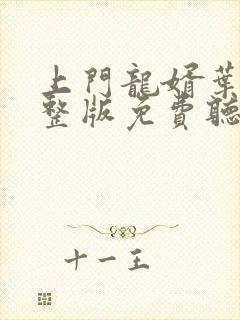 上門龍婿葉
整版免費聽
十一王